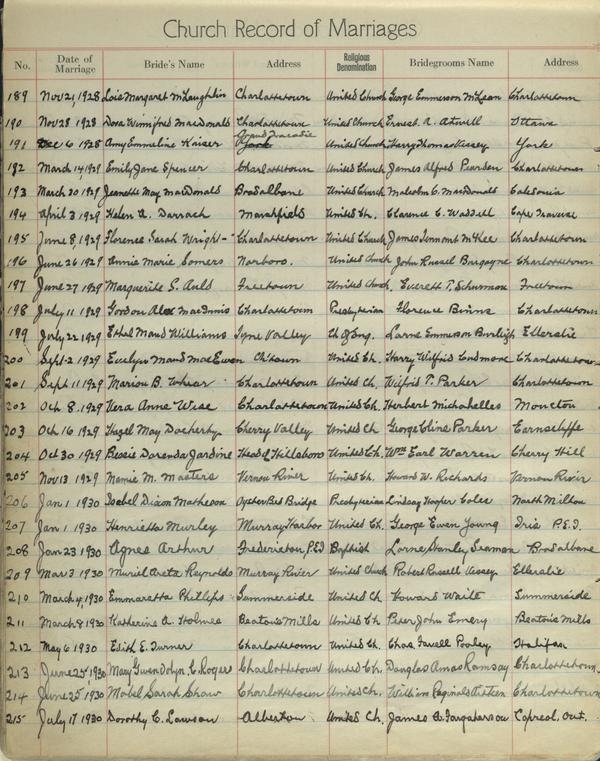 Church Record of Marriages
No. Date of Marriage Bride's Name Address Religious Denomination Bridegrooms Name Address
189 Nov 21, 1928 Lois Margaret McLaughlin Charlottetown United Church George Emmerson McLean Charlottetown
190 Nov 28 1928 Dora Winnifred MacDonald Charlottetown United Church Ernest A. Atwell Ottawa
Grand Tracadie
191 Dec 6 1928 Amy Emmeline Kaiser York United Church Harry Thomas Vessey York
192 March 14, 1929 Emily Jane Spencer Charlottetown United Church James Alfred Charlottetown
193 March 20, 1929 Jeanette May MacDonald Bradalbane United Church Malcolm C. MacDonald Caledonia
194 April 3 1929 Helen A. Darrach Marshfield United Ch. Clarence C. Waddell Cape Traverse
195 June 8, 1929 Florence Sarah Wright Charlottetown United Church James Tennant McKee Charlottetown
196 June 26 1929 Annie Marie Somers Norboro. United Church John Russel Burgoyne Charlottetown
197 June 27 1929 Marguerite S. Auld Freetown United Church Everett T. Schurman Freetown
198 July 11 1929 Gordon Alex MacInnis Charlottetown Presbyterian Florence Binns Charlottetown
199 July 22 1929 Ethel Maud Williams Tyne Valley Ch of Eng. Lorne Emmerson Burleigh Ellerslie
200 Sept. 2 1929 Evelyn Maud MacEwen Ch'town United Ch. Harry Wilfrid Cudmore Charlottetown
201 Sept 11 1929 Marion B. Whear Charlottetown United Ch. Wilfrid T. Parker Charlottetown
202 Oct 8. 1929 Vera Anne Wise Charlottetown United Ch. Herbert Michahelles Moncton
203 Oct 16 1929 Hazel May Docherty Cherry Valley United Ch George Cline Parker Earnscliffe
204 Oct 30 1929 Bessie Dorenda Jardine Head of Hillsboro United Ch. Wm Earl Warren Cherry Hill
205 Nov 13 1929 Mamie M. Masters Vernon River United Ch. Howard W. Richards Vernon River
206 Jan 1 1930 Isabel Dixon Matheson Oyster Bed Bridge Presbyterian Lindsay Hooper Coles North Milton
207 Jan 1 1930 Henrietta Murley Murray Harbor United Ch. George Ewen Young Iris P.E.I.
208 Jan 23 1930 Agnes Arthur Fredericton, P.E.I Baptist Lorne Stanley Seaman Bradalbane
209 Mar 3 1930 Muriel Areta Reynolds Murray River United Church Robert Russell Vessey Ellerslie
210 March 4, 1930 Emmaretta Phillips Summerside United Ch Howard Waite Summerside
211 March 8, 1930 Katherine A. Holmes Beaton's Mills United Ch Peter John Emery Beaton's Mills
212 May 6 1930 Edith E. Turner Charlottetown United Ch. Chas. Pooley Halifax
213 June 25th 1930 Mary Gwendolyn C. Rogers Charlottetown United Ch. Douglas Amos Ramsay Charlottetown.
214 June 25th 1930 Mabel Sarah Shaw Charlottetown United Ch. William Reginald Aitken Charlottetown
215 July 17 1930 Dorothy C. Lawson Alberton United Ch. James A. Farquharson Capreol, Ont.